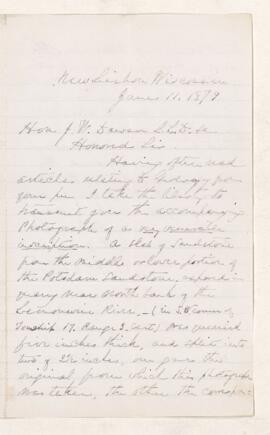 New Lisbon Wisconsin
June 11. 1879
Hon J. W. Dawson L.L.D. &c
Honored Sir.
Having often read
articles relating to Geology from
your pen I take the liberty to
transmit you the accompanying
Photograph of a
inscription. A slab of Sandstone
from the middle or lower portion of
the Potsdam Sandstone, exposed in
quarry near North bank of the
Lemonweir River, - (in S.W. corner of
Township 17. Range 3. East) was quarried
five inches thick, and split into
two of 2½ inches, one gives the
original from which this photograph
was taken, the other the